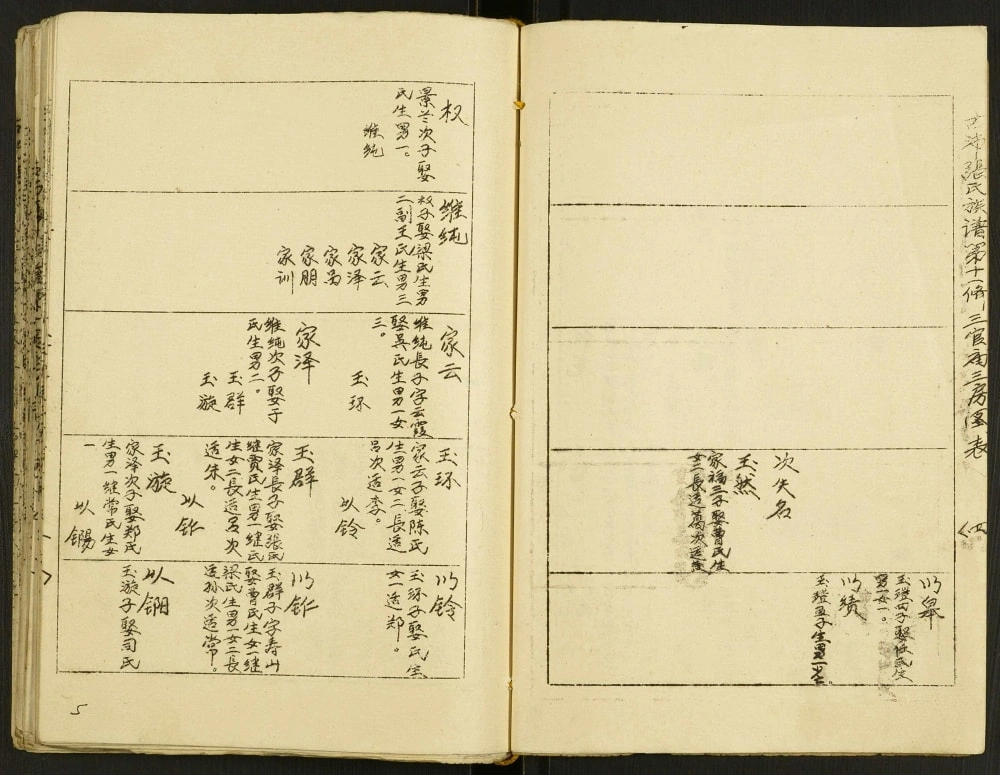 張氏族谱第十一修三官庙三房图表
次失名
玉然
家福三子娶曹民生
女二長适葛次适
以皋
男一女一。
以绩
权
景兰次子娶
民生男一。
维纯
维纯
权子娶梁民生男
二副王氏生男三
家云
家泽
家昌
家朋
家训
家云
维纯長子字云霞
娶吴氏生男一女
三。
玉环
家泽
维纯次子娶于
民生男二。
玉群
玉璇
玉环
家云子娶陈氏
生男一女二長适
吕次适李。
以铃
玉群
家泽長子娶張氏
继贾民生男一继氏
生女二長适吕次
适朱。
以
玉璇
家泽次子娶郑氏
生男一继常氏生女
一
以
以铃
玉环子娶氏生
女一适郑。
以
玉群子字寿山
娶曹氏生女一继
梁民生男一女二長
适孙次适常。
以
玉璇子娶司氏
5